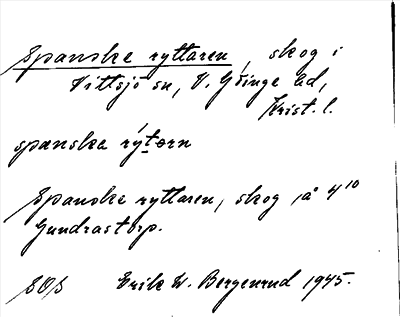 Spanske ryttaren, skog i
Vittsjö sn, V. Göinge hd,
Krist. l.
spanska rýtærn
Spanske ryttaren, skog, å 4 10
Gundrastorp.
SOS Erik W. Bergenrud 1945.